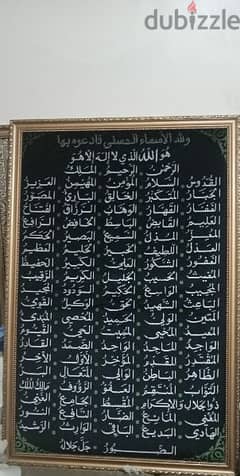 dubizzle
ولله الأسماء الحسنى فادعوه بها
هو الله الذي لا إله إلا هو
الرحمن الرحيم الملك
القدوس السلام المؤمن المهيمن العزيز
الجبار المتكبر الخالق البارئ المصور
الغفار القهار الوهاب الرزاق الفتاح
العليم القابض الباسط الخافض الرافع
المعز المذل السميع البصير الحكم
العدل اللطيف الخبير الحليم العظيم
الغفور الشكور العلي الكبير الحفيظ
المقيت الحسيب الجليل الكريم الرقيب
المجيب الواسع الحكيم الودود المجيد
الباعث الشهيد الحق الوكيل القوي
المتين الولي الحميد المحصي المبدئ
المعيد المحيي المميت الحي القيوم
الواجد الماجد الواحد الصمد القادر
المقتدر المقدم المؤخر الأول الآخر
الظاهر الباطن الوالي المتعالي البر
التواب المنتقم العفو الرؤوف مالك الملك
ذو الجلال والإكرام المقسط الجامع الغني
المغني المانع الضار النافع النور
الهادي البديع الباقي الوارث الرشيد
الصبور جل جلاله